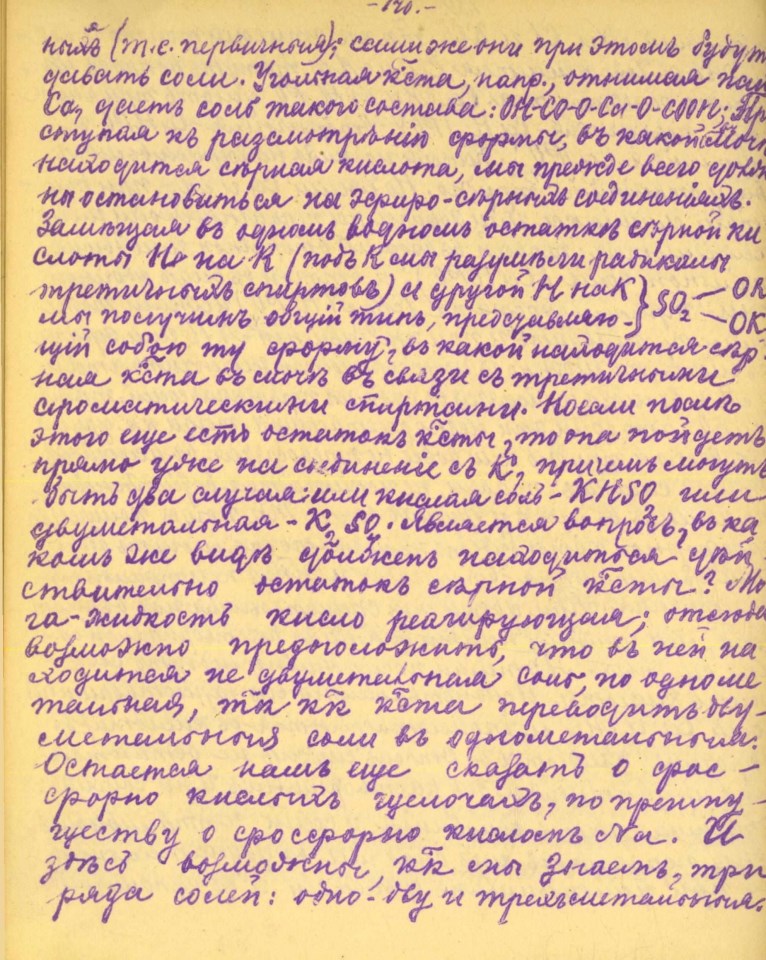 -120.-
ныхъ (т.е. первичныя); сами же они при этомъ будут
давать соли. Угольная кста, напр., отнимая
Ca, дастъ соль такого состава: OH-CO-O-Ca-O-COOH; Пр
ступая къ разсмотрѣнію формы, въ какой въ мочѣ
находится сѣрная кислота, мы прежде всего долж
ны остановиться на эфиро-сѣрныхъ соединеніяхъ.
Замѣщая въ одномъ водномъ остаткѣ сѣрной ки
слоты H на K (подъ K мы разумѣли радикалы
третичныхъ спиртовъ) и другой H на K } SO2 — OK
мы получимъ общій типъ, представляю- — OK
щій собою ту форму, въ какой находится сѣр-
ная кста въ мочѣ въ связи съ третичными
ароматическими спиртами. Но если послѣ
этого еще есть остатокъ ксты, то она пойдетъ
прямо уже на соединеніе съ K, причемъ могутъ
быть два случая: или кислая соль - KHSO или
двуметальная - K2SO. Является вопросъ, въ ка
комъ же видѣ долженъ находиться дѣй
ствительно остатокъ сѣрной ксты? Мо
ча-жидкость кисло реагирующая; отсюда
возможно предположить, что въ ней на
ходится не двуметальная соль, но одноме
тальная, тк кк кста переводитъ дву-
метальныя соли въ однометальныя.
Остается намъ еще сказать о фос-
форно кислыхъ щелочахъ, по преиму-
ществу о фосфорно кисломъ Na. И
здѣсь возможны, кк мы знаемъ, три
ряда солей: одно-дву и трехъметальныя.